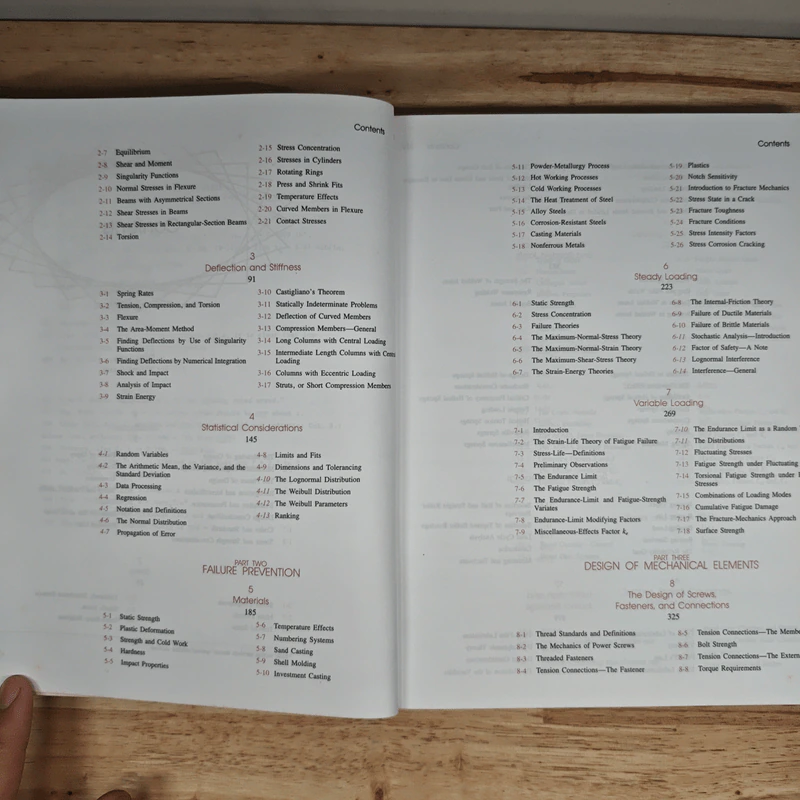 Contents
2-7 Equilibrium
2-8 Shear and Moment
2-9 Singularity Functions
2-10 Normal Stresses in Flexure
2-11 Beams with Asymmetrical Sections
2-12 Shear Stresses in Beams
2-13 Shear Stresses in Rectangular-Section Beams
2-14 Torsion
2-15 Stress Concentration
2-16 Stresses in Cylinders
2-17 Rotating Rings
2-18 Press and Shrink Fits
2-19 Temperature Effects
2-20 Curved Members in Flexure
2-21 Contact Stresses
3
Deflection and Stiffness
91
3-1 Spring Rates
3-2 Tension, Compression, and Torsion
3-3 Flexure
3-4 The Area-Moment Method
3-5 Finding Deflections by Use of Singularity
Functions
3-6 Finding Deflections by Numerical Integration
3-7 Shock and Impact
3-8 Analysis of Impact
3-9 Strain Energy
3-10 Castigliano's Theorem
3-11 Statically Indeterminate Problems
3-12 Deflection of Curved Members
3-13 Compression Members—General
3-14 Long Columns with Central Loading
3-15 Intermediate Length Columns with Cent
Loading
3-16 Columns with Eccentric Loading
3-17 Struts, or Short Compression Members
4
Statistical Considerations
145
4-1 Random Variables
4-2 The Arithmetic Mean, the Variance, and the
Standard Deviation
4-3 Data Processing
4-4 Regression
4-5 Notation and Definitions
4-6 The Normal Distribution
4-7 Propagation of Error
4-8 Limits and Fits
4-9 Dimensions and Tolerancing
4-10 The Lognormal Distribution
4-11 The Weibull Distribution
4-12 The Weibull Parameters
4-13 Ranking
PART TWO
FAILURE PREVENTION
5
Materials
185
5-1 Static Strength
5-2 Plastic Deformation
5-3 Strength and Cold Work
5-4 Hardness
5-5 Impact Properties
5-6 Temperature Effects
5-7 Numbering Systems
5-8 Sand Casting
5-9 Shell Molding
5-10 Investment Casting
Contents
5-11 Powder-Metallurgy Process
5-12 Hot Working Processes
5-13 Cold Working Processes
5-14 The Heat Treatment of Steel
5-15 Alloy Steels
5-16 Corrosion-Resistant Steels
5-17 Casting Materials
5-18 Nonferrous Metals
5-19 Plastics
5-20 Notch Sensitivity
5-21 Introduction to Fracture Mechanics
5-22 Stress State in a Crack
5-23 Fracture Toughness
5-24 Fracture Conditions
5-25 Stress Intensity Factors
5-26 Stress Corrosion Cracking
6
Steady Loading
223
6-1 Static Strength
6-2 Stress Concentration
6-3 Failure Theories
6-4 The Maximum-Normal-Stress Theory
6-5 The Maximum-Normal-Strain Theory
6-6 The Maximum-Shear-Stress Theory
6-7 The Strain-Energy Theories
6-8 The Internal-Friction Theory
6-9 Failure of Ductile Materials
6-10 Failure of Brittle Materials
6-11 Stochastic Analysis—Introduction
6-12 Factor of Safety—A Note
6-13 Lognormal Interference
6-14 Interference—General
7
Variable Loading
269
7-1 Introduction
7-2 The Strain-Life Theory of Fatigue Failure
7-3 Stress-Life—Definitions
7-4 Preliminary Observations
7-5 The Endurance Limit
7-6 The Fatigue Strength
7-7 The Endurance-Limit and Fatigue-Strength
Variates
7-8 Endurance-Limit Modifying Factors
7-9 Miscellaneous-Effects Factor ke
7-10 The Endurance Limit as a Random
7-11 The Distributions
7-12 Fluctuating Stresses
7-13 Fatigue Strength under Fluctuating
7-14 Torsional Fatigue Strength under
Stresses
7-15 Combinations of Loading Modes
7-16 Cumulative Fatigue Damage
7-17 The Fracture-Mechanics Approach
7-18 Surface Strength
PART THREE
DESIGN OF MECHANICAL ELEMENTS
8
The Design of Screws,
Fasteners, and Connections
325
8-1 Thread Standards and Definitions
8-2 The Mechanics of Power Screws
8-3 Threaded Fasteners
8-4 Tension Connections—The Fastener
8-5 Tension Connections—The Membe
8-6 Bolt Strength
8-7 Tension Connections—The Extern
8-8 Torque Requirements